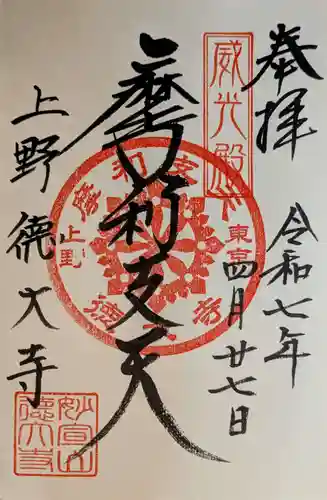 奉拝
令和七年
四月廿七日
威光殿
摩利支天
摩利支天
東京
上野
德大寺
上野
德大寺
妙宣山
德大寺